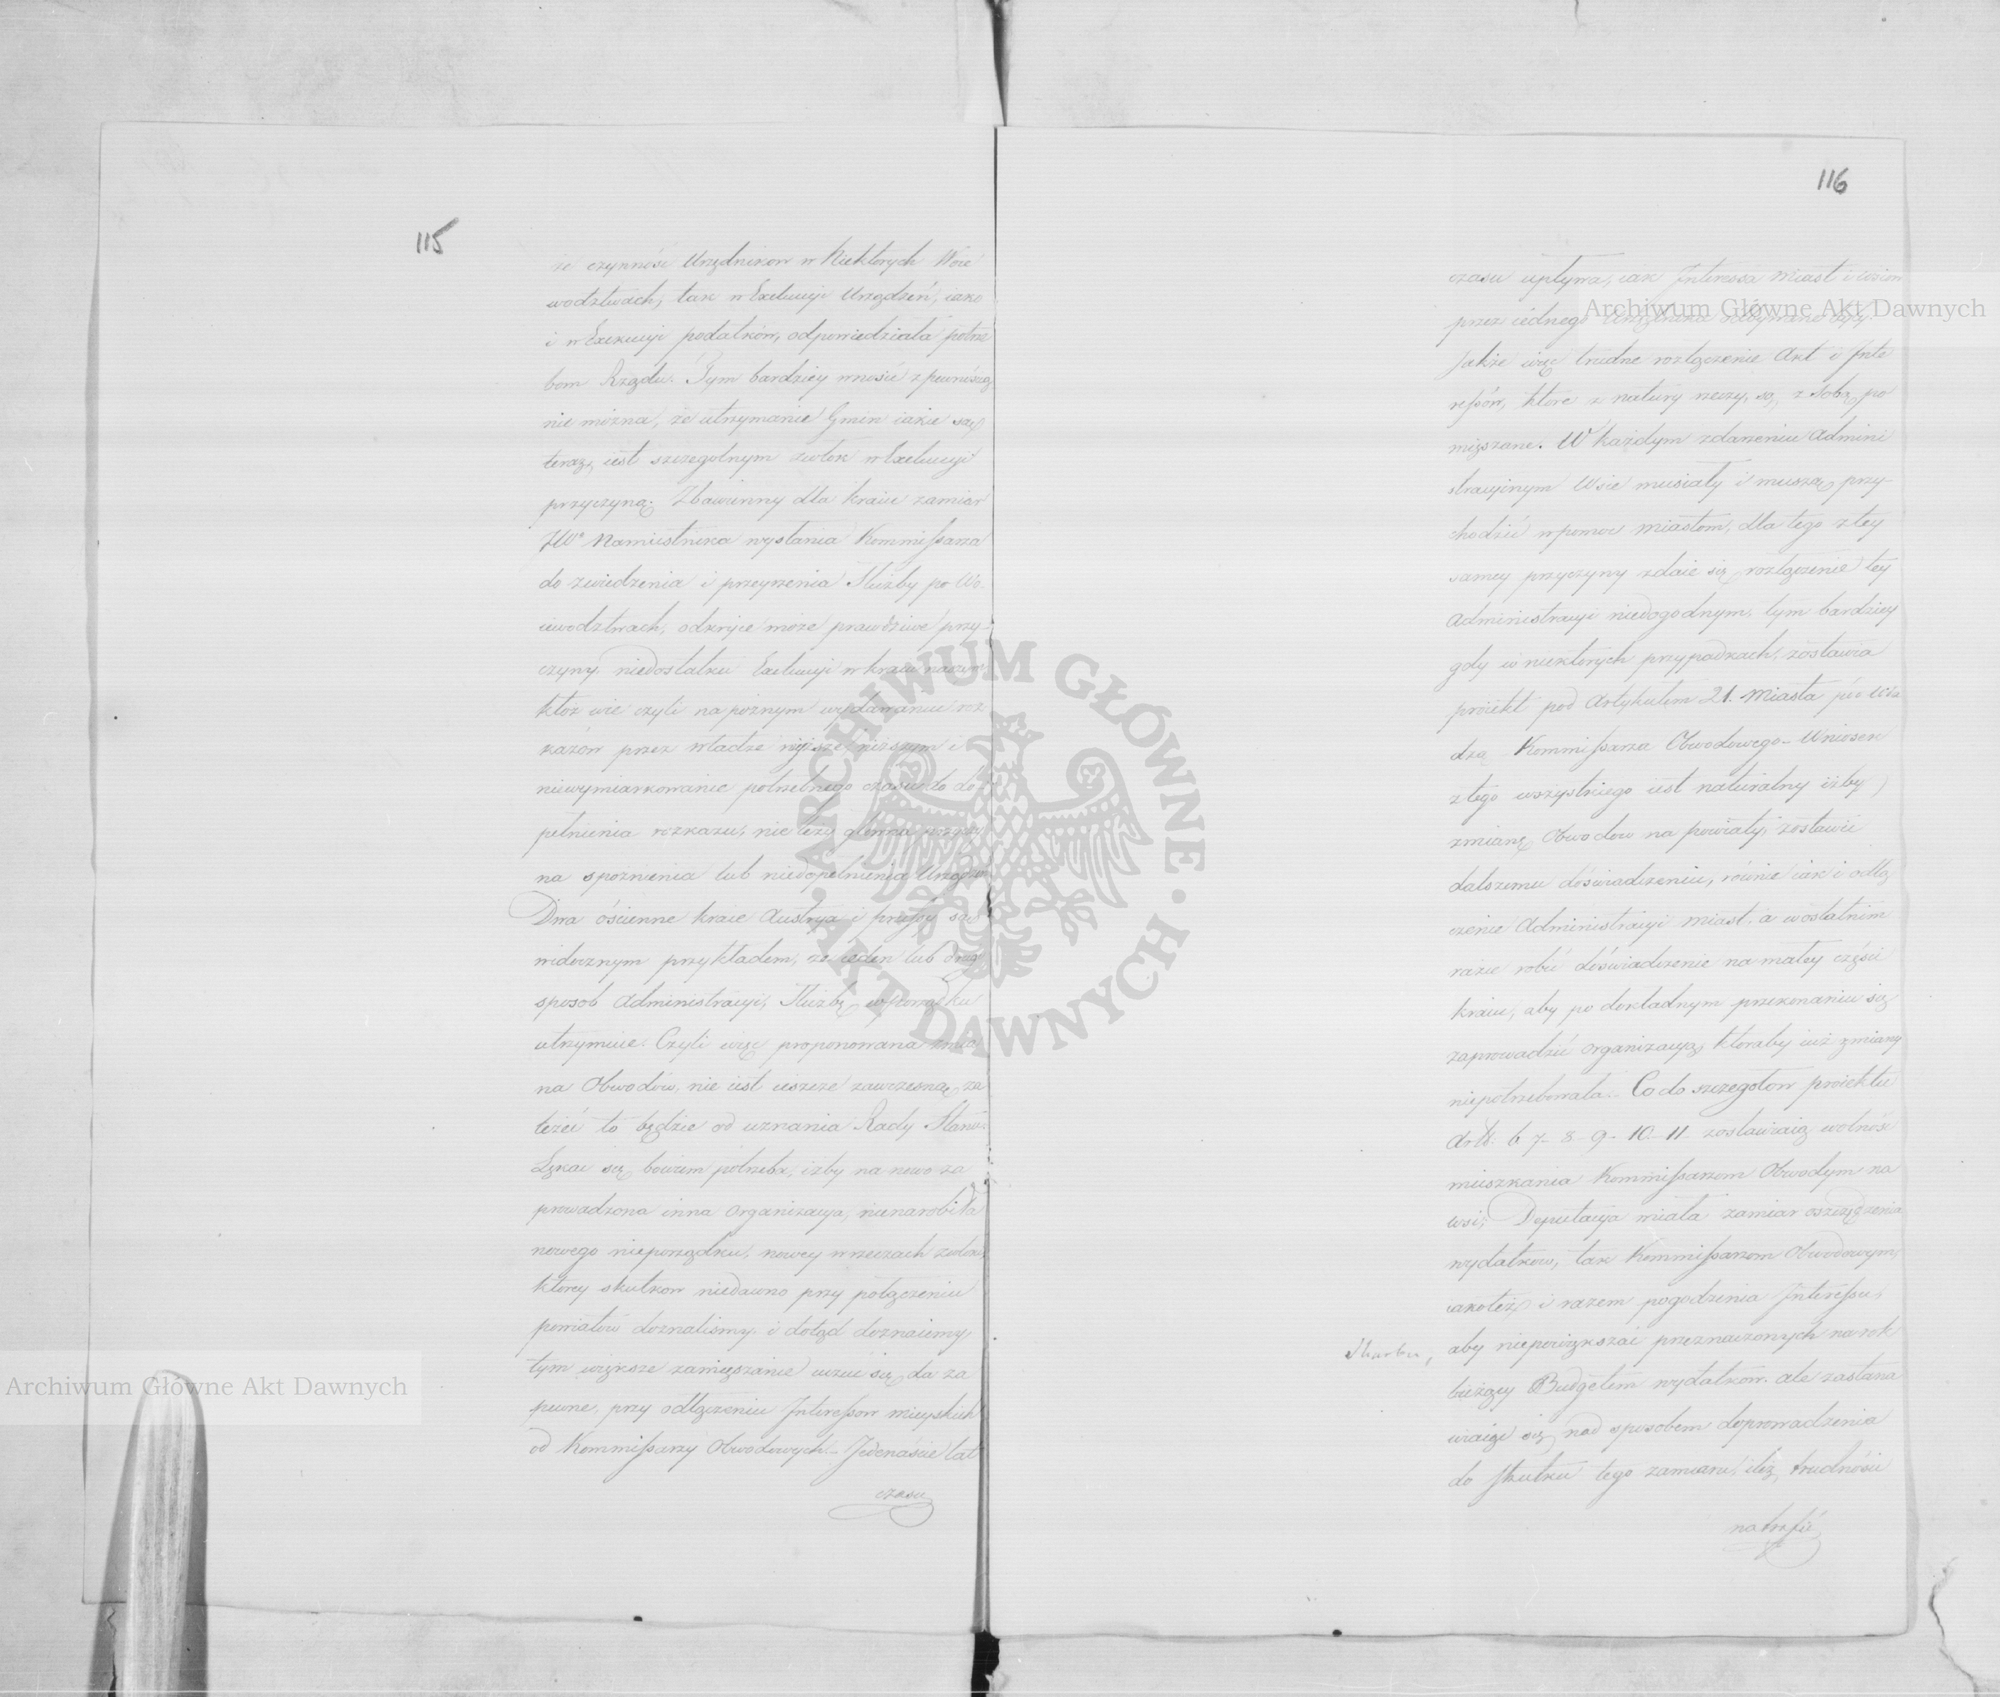 115
że czynność Urzędnikow w Niektorych Woie
wodztwach, tak w Exekucyi Urządzeń, iako
i w Exekucyi podatków, odpowiedziała potrze
bom Rządu. Tym bardziey wnosić z pewnością
nie można, że utrzymanie Gmin iakie są
teraz, iest szczegolnym zwłok w Exekucyi
przyczyną. Zbawienny dla kraiu zamiar
JWo Namiestnika wysłania Kommissarza
do zwiedzenia i przeyrzenia Służby po Wo
iewodztwach, odkryie może prawdziwe przy-
czyny niedostatku Exekucyi w kraiu naszym
ktoż wie czyli na poźnym wydawaniu roz
kazów przez władze wyższe niższym i
niewymiarkowanie potrzebnego czasu do do-
pełnienia rozkazu, nie leży głowna przyczy
na spoznienia lub niedopełnienia Urządzeń
Dwa ościenne kraie Austrya i Prussy są
widocznym przykładem, że ieden lub drugi
sposob Administracyi, Służbę w porządku
utrzymuie. Czyli więc proponowana zmia
na Obwodów, nie iest ieszcze zawczesną, za
leżeć to będzie od uznania Rady Stanu.
Lękać się bowiem potrzeba, iżby na nowo za
prowadzona inna organizacya, nienarobiła
nowego nieporządku, nowey w rzeczach zwłoki,
ktorey skutkow niedawno przy połączeniu
powiatów doznaliśmy, i dotąd doznaiemy,
tym większe zamięszanie uczuć się da za
pewne, przy odłączeniu Interessow mieyskich
od Kommissarzy Obwodowych. Jedenaście lat
czasu
116
czasu upływa, iak Interessa Miast i wsiow
przez iednego Urzędnika odbywane były.
Jakże więc trudne rozłączenie Akt i Inte
ressów, ktore z natury rzeczy, są z sobą po
mięszane. W każdym zdarzeniu Admini
stracyinym Wsie musiały i muszą przy-
chodzić w pomoc miastom, dla tego z tey
samey przyczyny zdaie się rozłączenie tey
Administracyi niedogodnym, tym bardziey
gdy w niektorych przypadkach, zostawia
proiekt pod Artykułem 21. Miasta pod wła
dzą Kommissarza Obwodowego. Wniosek
z tego wszystkiego iest naturalny iżby
zmianę Obwodow na powiaty, zostawić
dalszemu doświadczeniu, równie iak i odłą
czenie Administracyi miast, a w ostatnim
razie robić doświadczenie na małey części
kraiu, aby po dokładnym przekonaniu się
zaprowadzić organizacyą, ktoraby iuż zmiany
niepotrzebowała. Co do szczegołow proiektu
Art. 6 7- 8- 9- 10- 11- zostawiaią wolność
mieszkania Kommissarzom Obwodym na
wsi, Deputacya miała zamiar oszczędzenia
wydatkow, tak Kommissarzom Obwodowym,
iakoteż i razem pogodzenia Interessu,
Skarbu,
aby niepowiększać przeznaczonych na rok
bieżący Budgetem wydatkow. ale zastana
wiaiąc się nad sposobem doprowadzenia
do skutku tego zamiaru, ileż trudności
natrafić
Archiwum Główne Akt Dawnych
Archiwum Główne Akt Dawnych
ARCHIWUM GŁÓWNE · AKT DAWNYCH ·